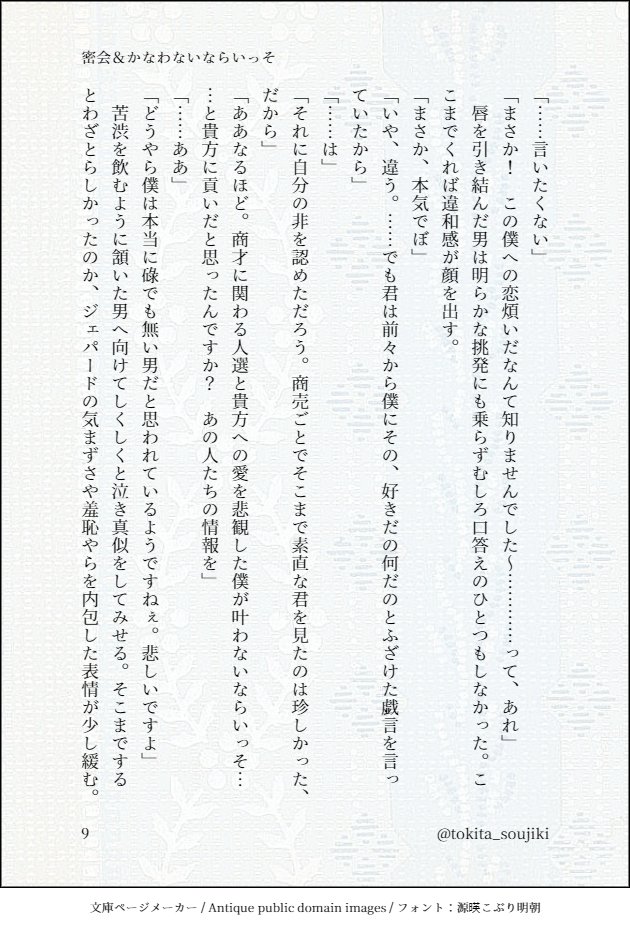 密会＆かなわないならいっそ
「……言いたくない」
「まさか！　この僕への恋煩いだなんて知りませんでした～…………って、あれ」
　唇を引き結んだ男は明らかな挑発にも乗らずむしろ口答えのひとつもしなかった。こ
こまでくれば違和感が顔を出す。
「まさか、本気でぼ」
「いや、違う。……でも君は前々から僕にその、好きだの何だのとふざけた戯言を言っ
ていたから」
「……は」
「それに自分の非を認めただろう。商売ごとでそこまで素直な君を見たのは珍しかった、
だから」
「ああなるほど。商才に関わる人選と貴方への愛を悲観した僕が叶わないならいっそ…
…と貴方に貢いだと思ったんですか？　あの人たちの情報を」
「……ああ」
「どうやら僕は本当に碌でも無い男だと思われているようですねぇ。悲しいですよ」
　苦渋を飲むように頷いた男へ向けてしくしくと泣き真似をしてみせる。そこまでする
とわざとらしかったのか、ジェパードの気まずさや羞恥やらを内包した表情が少し緩む。
9
@tokita_soujiki
文庫ページメーカー / Antique public domain images / フォント：源暎こぶり明朝